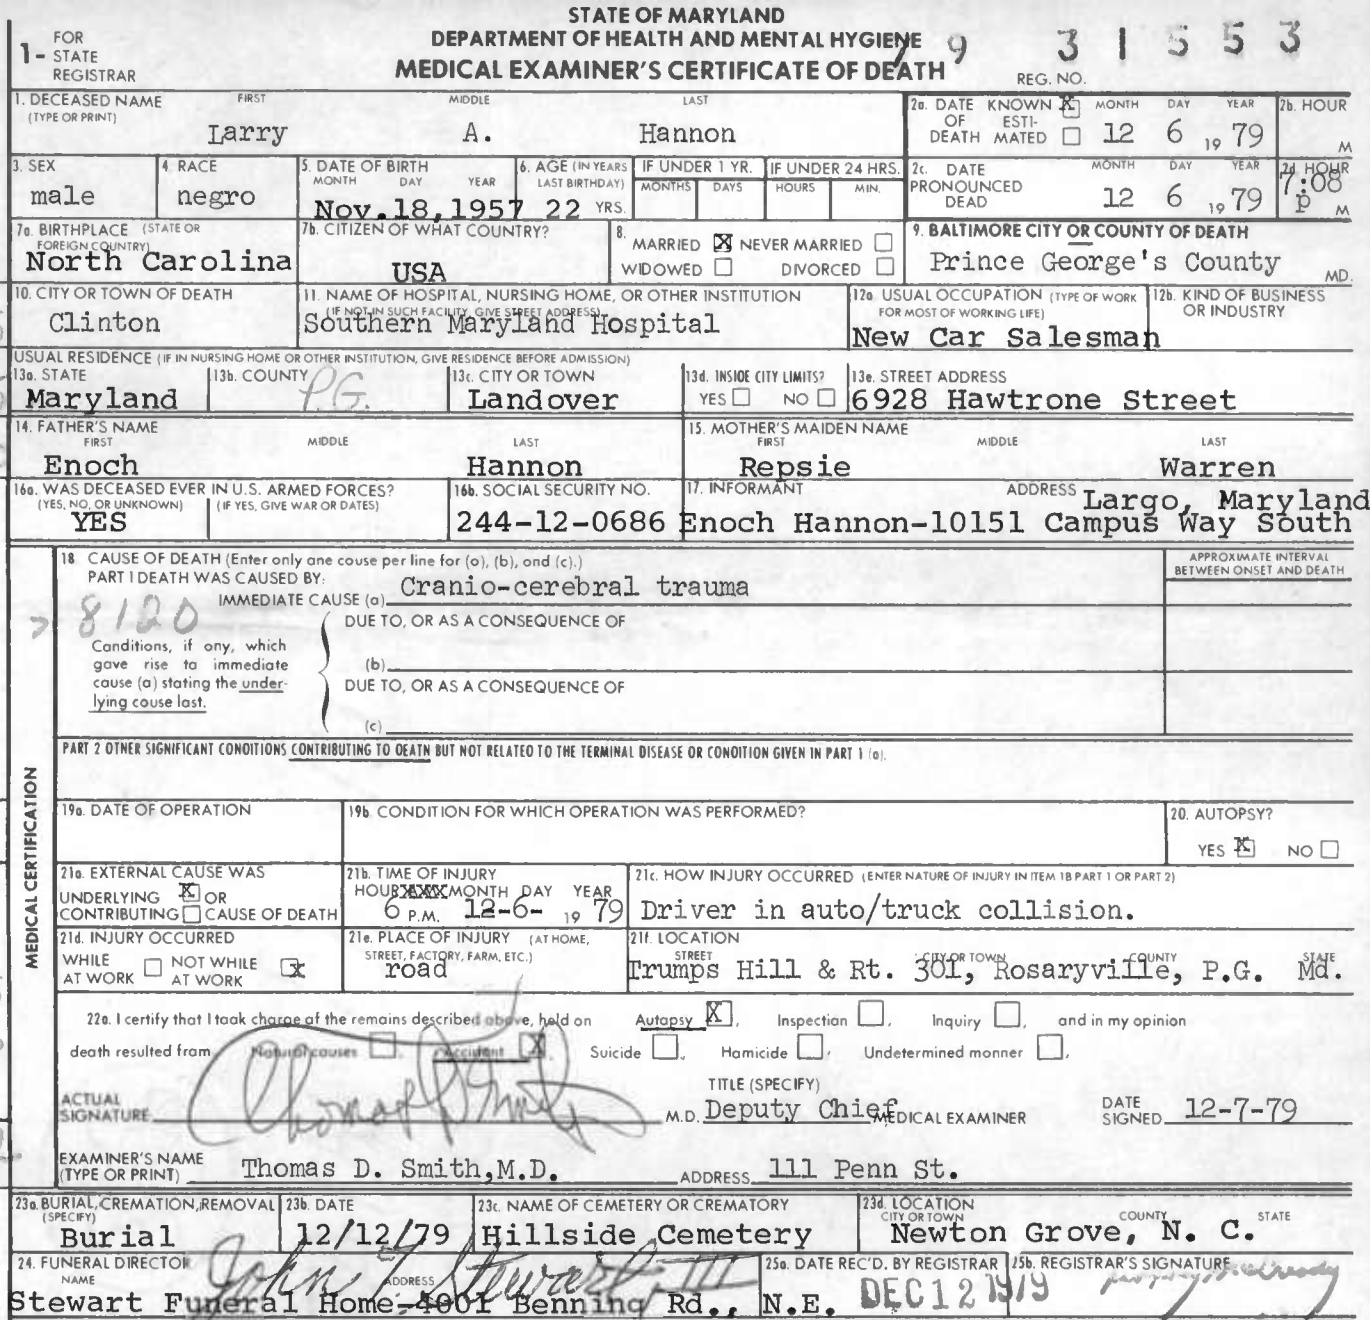 STATE OF MARYLAND
DEPARTMENT OF HEALTH AND MENTAL HYGIENE
MEDICAL EXAMINER'S CERTIFICATE OF DEATH
1- FOR STATE REGISTRAR
REG. NO. 79 31553
1. DECEASED NAME (TYPE OR PRINT) FIRST MIDDLE LAST
Larry A. Hannon
2a. DATE OF DEATH KNOWN X ESTIMATED MONTH DAY YEAR
12 6 1979
2b. HOUR M
3. SEX
male
4. RACE
negro
5. DATE OF BIRTH MONTH DAY YEAR
Nov.18,1957
6. AGE (IN YEARS LAST BIRTHDAY)
22 YRS.
IF UNDER 1 YR. MONTHS DAYS
IF UNDER 24 HRS. HOURS MIN.
2c. DATE PRONOUNCED DEAD MONTH DAY YEAR
12 6 1979
2d HOUR
7:08 p M
7a. BIRTHPLACE (STATE OR FOREIGN COUNTRY)
North Carolina
7b. CITIZEN OF WHAT COUNTRY?
USA
8. MARRIED X NEVER MARRIED
WIDOWED DIVORCED
9. BALTIMORE CITY OR COUNTY OF DEATH
Prince George's County MD.
10. CITY OR TOWN OF DEATH
Clinton
11. NAME OF HOSPITAL, NURSING HOME, OR OTHER INSTITUTION
(IF NOT IN SUCH FACILITY, GIVE STREET ADDRESS)
Southern Maryland Hospital
12a. USUAL OCCUPATION (TYPE OF WORK FOR MOST OF WORKING LIFE)
New Car Salesman
12b. KIND OF BUSINESS OR INDUSTRY
USUAL RESIDENCE (IF IN NURSING HOME OR OTHER INSTITUTION, GIVE RESIDENCE BEFORE ADMISSION)
13a. STATE
Maryland
13b. COUNTY
P.G.
13c. CITY OR TOWN
Landover
13d. INSIDE CITY LIMITS?
YES NO
13e. STREET ADDRESS
6928 Hawtrone Street
14. FATHER'S NAME FIRST MIDDLE LAST
Enoch Hannon
15. MOTHER'S MAIDEN NAME FIRST MIDDLE LAST
Repsie Warren
16a. WAS DECEASED EVER IN U.S. ARMED FORCES?
(YES, NO, OR UNKNOWN) (IF YES, GIVE WAR OR DATES)
YES
16b. SOCIAL SECURITY NO.
244-12-0686
17. INFORMANT ADDRESS Largo, Maryland
Enoch Hannon-10151 Campus Way South
MEDICAL CERTIFICATION
18 CAUSE OF DEATH (Enter only one cause per line for (a), (b), and (c).)
PART I DEATH WAS CAUSED BY:
IMMEDIATE CAUSE (a) Cranio-cerebral trauma
APPROXIMATE INTERVAL BETWEEN ONSET AND DEATH
8120
DUE TO, OR AS A CONSEQUENCE OF
Conditions, if any, which gave rise to immediate cause (a) stating the underlying cause last.
(b)
DUE TO, OR AS A CONSEQUENCE OF
(c)
PART 2 OTHER SIGNIFICANT CONDITIONS CONTRIBUTING TO DEATH BUT NOT RELATED TO THE TERMINAL DISEASE OR CONDITION GIVEN IN PART 1 (a).
19a. DATE OF OPERATION
19b. CONDITION FOR WHICH OPERATION WAS PERFORMED?
20. AUTOPSY?
YES X NO
21a. EXTERNAL CAUSE WAS
UNDERLYING X OR
CONTRIBUTING CAUSE OF DEATH
21b. TIME OF INJURY
HOUR XXXX MONTH DAY YEAR
6 P.M. 12-6- 1979
21c. HOW INJURY OCCURRED (ENTER NATURE OF INJURY IN ITEM 18 PART 1 OR PART 2)
Driver in auto/truck collision.
21d. INJURY OCCURRED
WHILE AT WORK NOT WHILE AT WORK X
21e. PLACE OF INJURY (AT HOME, STREET, FACTORY, FARM, ETC.)
road
21f. LOCATION
STREET CITY OR TOWN COUNTY STATE
Trumps Hill & Rt. 301, Rosaryville, P.G. Md.
22a. I certify that I took charge of the remains described above, held on Autopsy X, Inspection, Inquiry, and in my opinion
death resulted from Natural causes, Accident X, Suicide, Homicide, Undetermined manner.
ACTUAL SIGNATURE Thomas D. Smith M.D.
TITLE (SPECIFY)
Deputy Chief MEDICAL EXAMINER
DATE SIGNED 12-7-79
EXAMINER'S NAME (TYPE OR PRINT) Thomas D. Smith,M.D. ADDRESS 111 Penn St.
23a. BURIAL, CREMATION, REMOVAL (SPECIFY)
Burial
23b. DATE
12/12/79
23c. NAME OF CEMETERY OR CREMATORY
Hillside Cemetery
23d. LOCATION CITY OR TOWN COUNTY STATE
Newton Grove, N. C.
24. FUNERAL DIRECTOR
NAME ADDRESS
John T. Stewart III
Stewart Funeral Home-4001 Benning Rd., N.E.
25a. DATE REC'D. BY REGISTRAR
DEC 12 1979
25b. REGISTRAR'S SIGNATURE